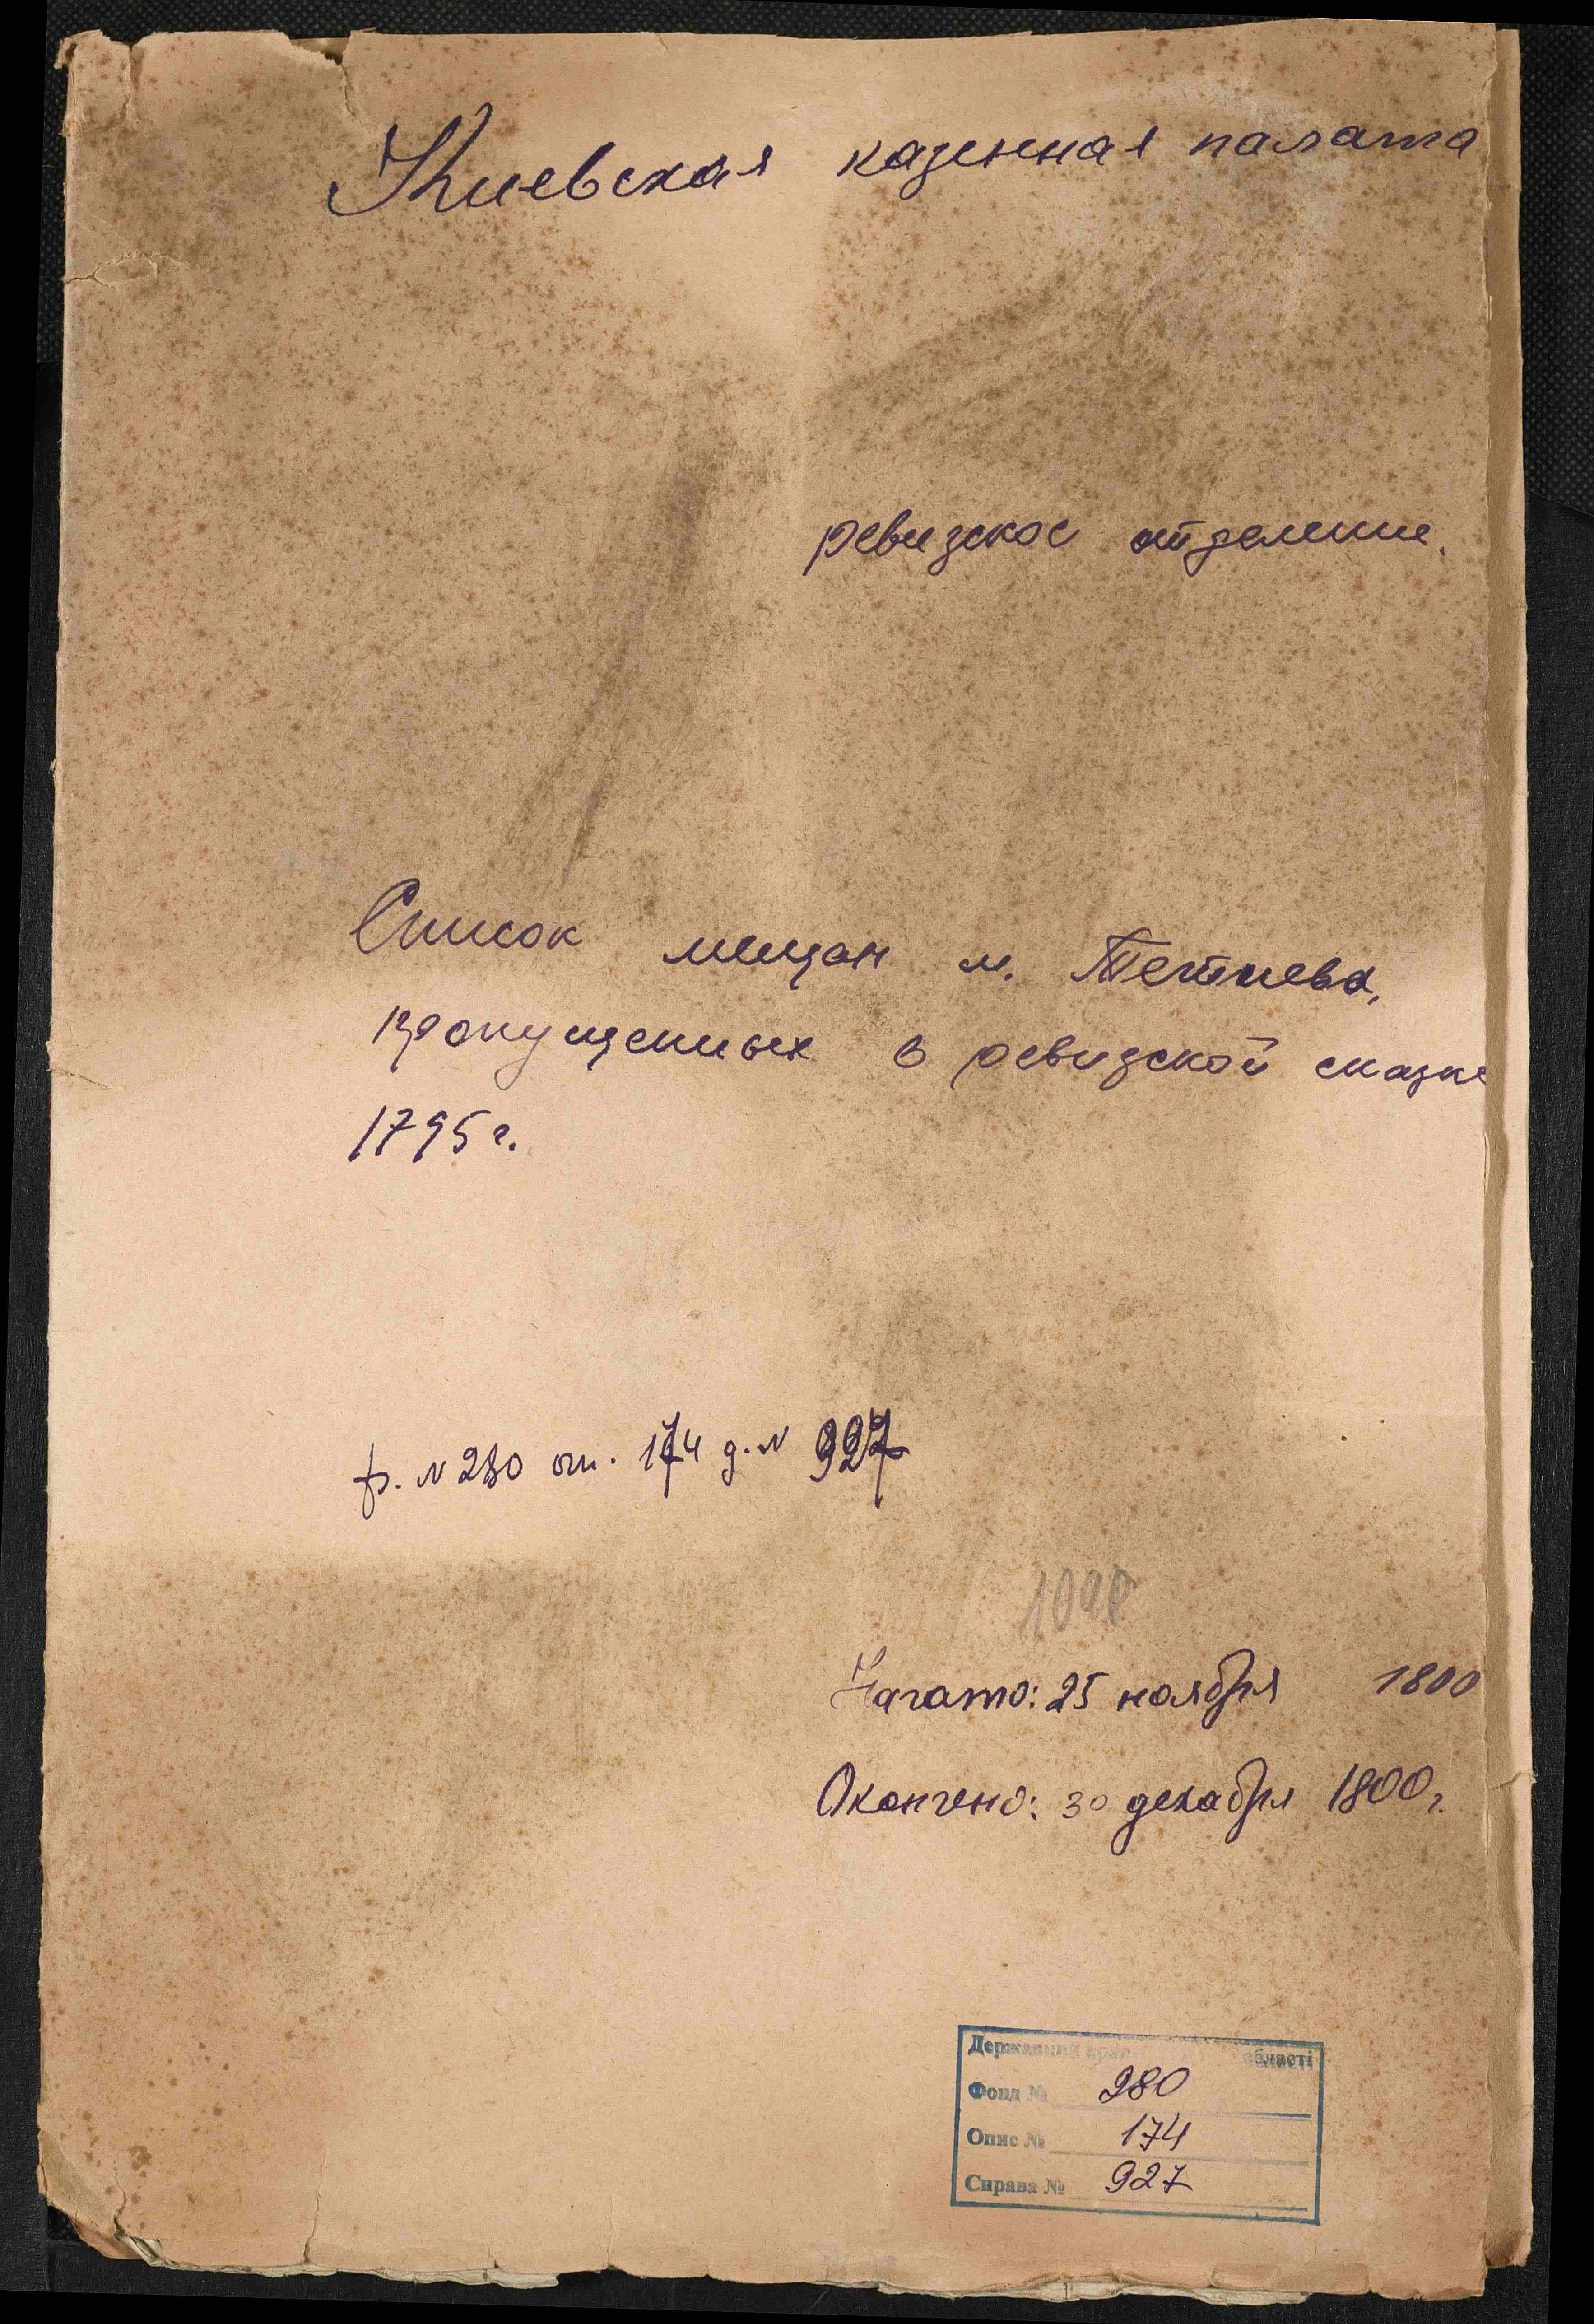 Киевская казенная палата
ревизское отделение.
Список мещан м. Тетиева,
пропущенных в ревизской сказке
1795 г.
ф. N 280 оп. 174 д. N 927
Начато: 25 ноября 1800
Окончено: 30 декабря 1800 г.
Державний області
Фонд № 280
Опис № 174
Справа № 927